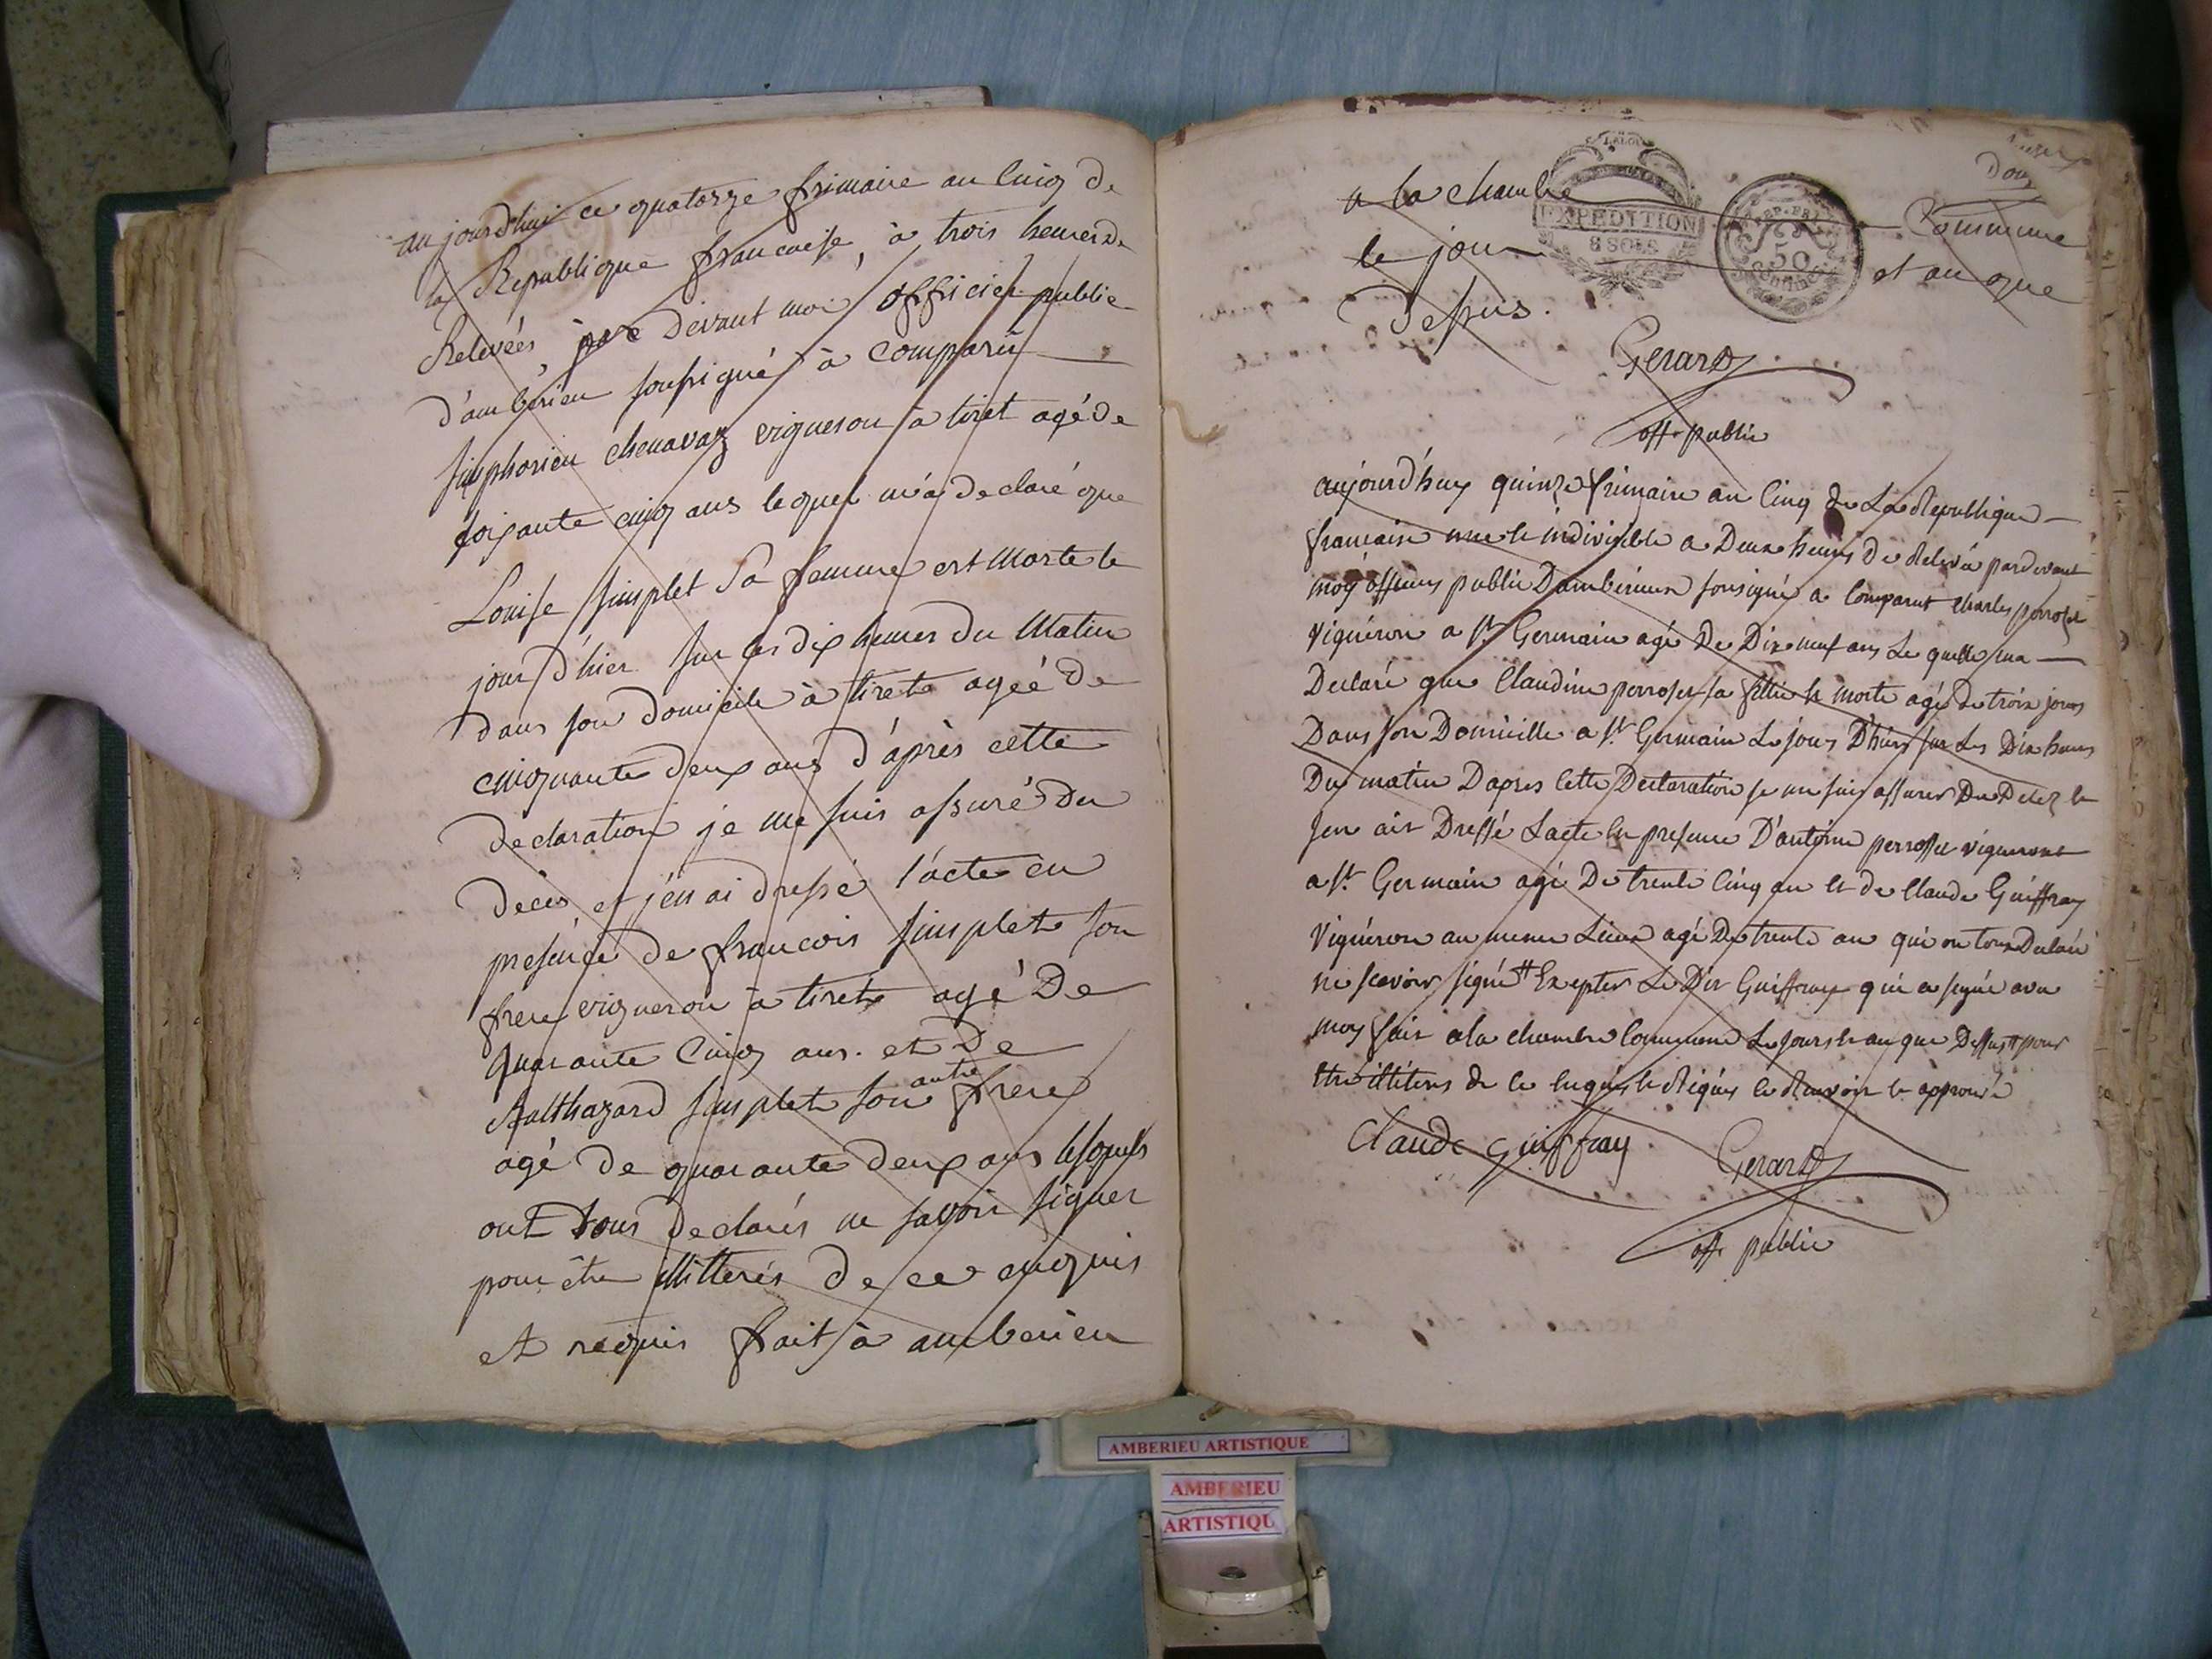 aujourd'hui ce quatorze frimaire an Cinq de
la Republique francaise, à trois heures de
Relevées, par devant moi officier public
d'amberieu soussigné à comparu
simphorien chenavaz vigneron à tiret agé de
soixante cinq ans lequel m'a declaré que
Louise simplet Sa femme est Morte le
jour d'hier sur les dix heures du Matin
dans son domicile à tiret agée de
cinquante deux ans d'après cette
declaration je me suis assuré du
deces et j'en ai dressé l'acte en
presence de francois simplet son
frere vigneron à tiret agé De
quarante Cinq ans. et De
Balthazard simplet son autre frere
agé de quarante deux ans lesquels
ont tous declarés ne savoir signer
pour être illitterés de ce enquis
et requis fait à amberieu
a la chambre Commune
le jour et an que
dessus.
LALOI
EXPEDITION
8 SOLS
REP. FRA
50
Centimes
Gerard
off. public
aujourd'huy quinze frimaire an Cinq de La Republique
francaise une et indivisible a Deux heures de Relevé pardevant
moy officier public D'amberieux sousigné a Comparut Charles perroset
Vigneron a St Germain agé De Dix neuf ans Le quelle ma
Declaré que Claudine perroset sa fillie et morte agé de trois jours
Dans son Domicille a St Germain Le jour D'hier sur Les Dix heures
Du matin Dapres Cette Declaration je me suis assurer Du Decez et
jen ait Dressé Lacte En presence D'antoine perrosset vigneront
a St Germain agé De trente Cinq an et de Claude Guiffray
Vigneron au meme Lieux agé De trente an qui on tous Declaré
ne scavoir signé # Excepter Le Dit Guiffray qui a signé avec
moy fait a la chambre Commune Le jours et an que Dessus # pour
Etre illiterés de ce enquis et Requis le Renvoir et approuvé
Claude Guiffray Gerard
off. public
AMBERIEU ARTISTIQUE
AMBERIEU
ARTISTIQU